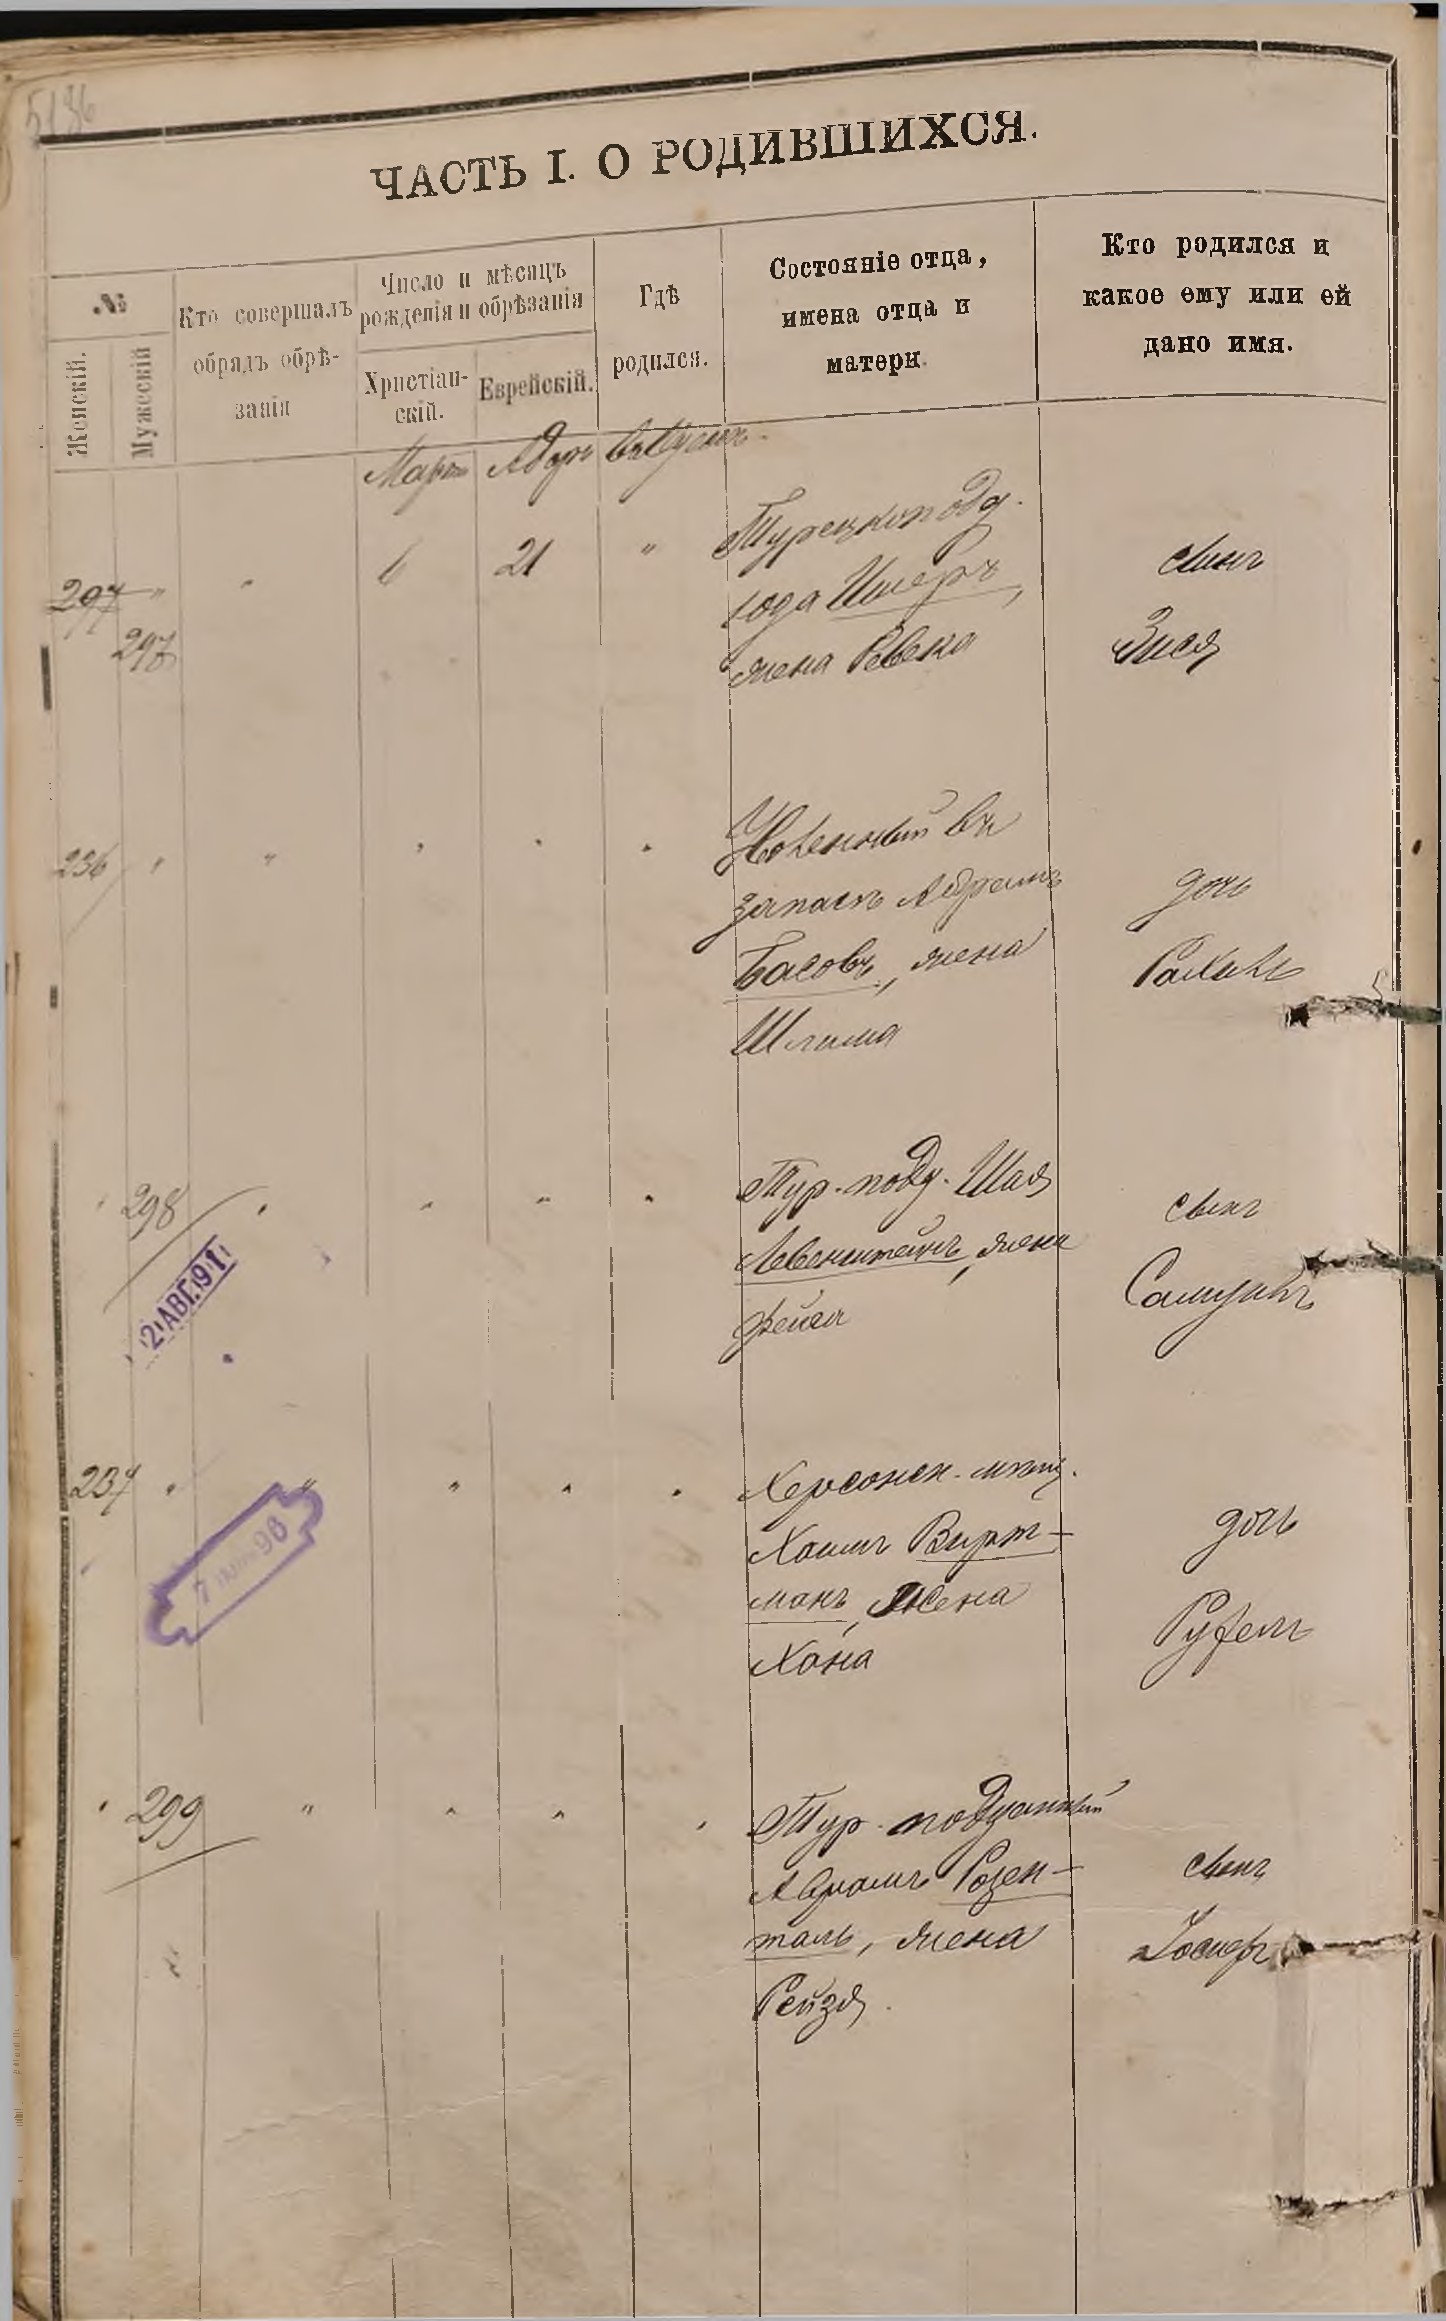 5136
ЧАСТЬ I. О РОДИВШИХСЯ.
№
Женскій.
Мужескій
Кто совершалъ
обрядъ обрѣ-
занія
Число и мѣсяцъ
рожденія и обрѣзанія
Христіан-
скій.
Еврейскій.
Гдѣ
родился.
Состояніе отца,
имена отца и
матери.
Кто родился и
какое ему или ей
дано имя.
Мартъ Адаръ
297 " " 6 21 " Турецкоподд.
297
Іода Шмеръ,
жена Ревека
сынъ
Зися
236 " " " " " въ
запасъ Абрамъ
Басовъ, жена
Шлима
дочь
Рахиль
" 298 " " " " Тур. подд. Шая
Левенштейнъ, жена
Фейга
сынъ
Самуилъ
2 АВГ.91
237 " " " " " Херсонск. мѣщ.
Хаимъ Вирт-
манъ, жена
Хана
дочь
Руфель
7 96
" 299 " " " " Тур. подданный
Абрамъ Розен-
таль, жена
Рейзя.
сынъ
Іосифъ